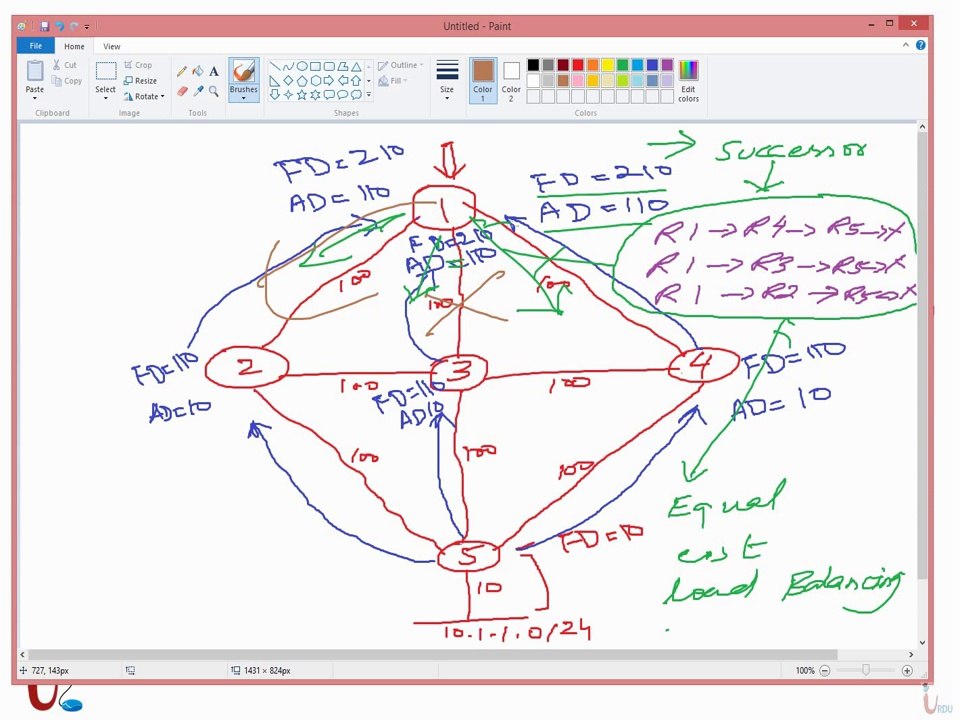 Untitled - Paint
File Home View
Cut
Copy
Paste
Clipboard
Crop
Resize
Rotate
Select
Image
Tools
Brushes
Outline
Fill
Shapes
Size
Color 1
Color 2
Edit colors
Colors
FD=210
AD=110
1
FD=210
AD=110
FD=210
AD=110
Successor
R1→R4→R5→X
R1→R3→R5→X
R1→R2→R5→X
100
100
100
2
3
4
100
100
FD=110
AD=10
FD=110
AD10
FD=110
AD=10
100
100
100
5
FD=10
10
10.1.1.0/24
Equal
cost
Load Balancing
727, 143px
1431 × 824px
100%
URDU